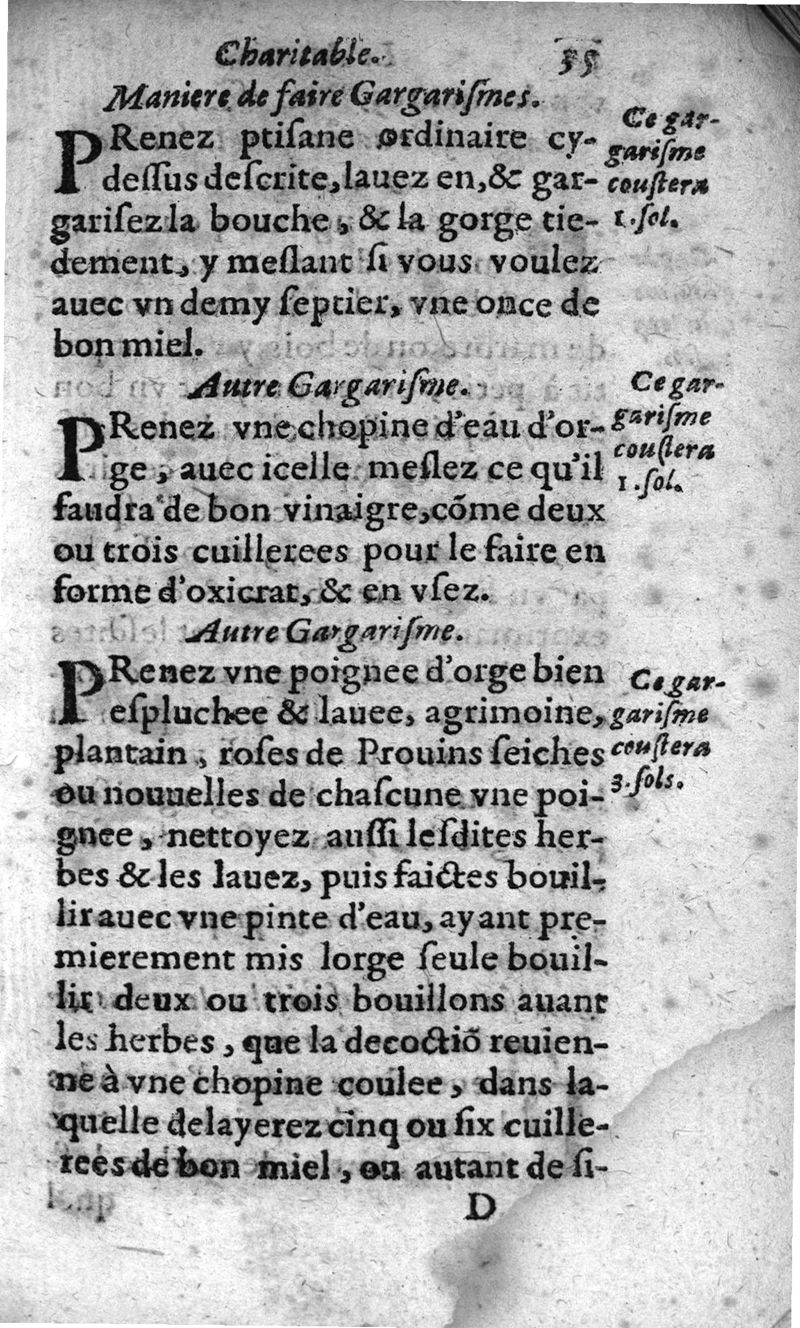 Charitable. 35
Maniere de faire Gargariſmes.
PRenez ptiſane ordinaire cy-
deſſus deſcrite, lauez en, & gar-
gariſez la bouche, & la gorge tie-
dement, y meſlant ſi vous voulez
auec vn demy ſeptier, vne once de
bon miel.
Ce gar-
gariſme
couſtera
1. ſol.
Autre Gargariſme.
PRenez vne chopine d'eau d'or-
ge, auec icelle meſlez ce qu'il
faudra de bon vinaigre, cõme deux
ou trois cuillerees pour le faire en
forme d'oxicrat, & en vſez.
Ce gar-
gariſme
couſtera
1. ſol.
Autre Gargariſme.
PRenez vne poignee d'orge bien
eſpluchee & lauee, agrimoine,
plantain, roſes de Prouins ſeiches
ou nouuelles de chaſcune vne poi-
gnee, nettoyez auſſi leſdites her-
bes & les lauez, puis faictes bouil-
lir auec vne pinte d'eau, ayant pre-
mierement mis lorge ſeule bouil-
lir deux ou trois bouillons auant
les herbes, que la decoctiõ reuien-
ne à vne chopine coulee, dans la-
quelle delayerez cinq ou ſix cuille-
rees de bon miel, ou autant de ſi-
Ce gar-
gariſme
couſtera
3. ſols.
D